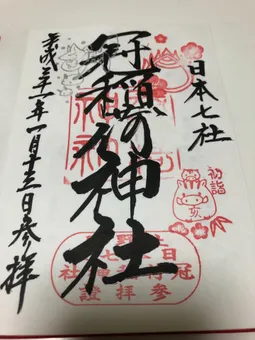 日本七社
冠稲荷神社
平成三十一年一月十三日参拝
初詣
亥